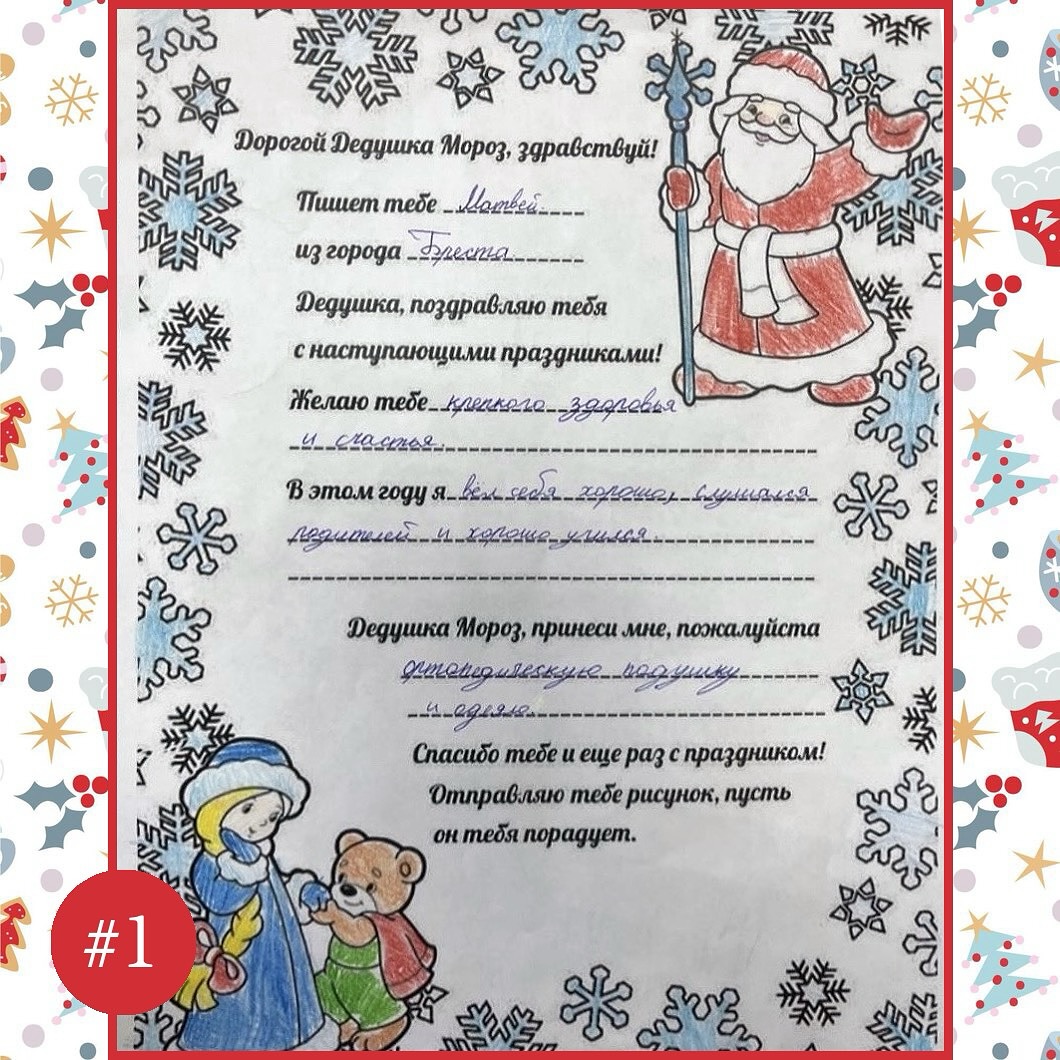 Дорогой Дедушка Мороз, здравствуй!
Пишет тебе Матвей
из города Бреста
Дедушка, поздравляю тебя
с наступающими праздниками!
Желаю тебе крепкого здоровья
и счастья.
В этом году я вёл себя хорошо, слушался
родителей и хорошо учился.
Дедушка Мороз, принеси мне, пожалуйста
ортопедическую подушку
и одеяло.
Спасибо тебе и еще раз с праздником!
Отправляю тебе рисунок, пусть
он тебя порадует.
#1